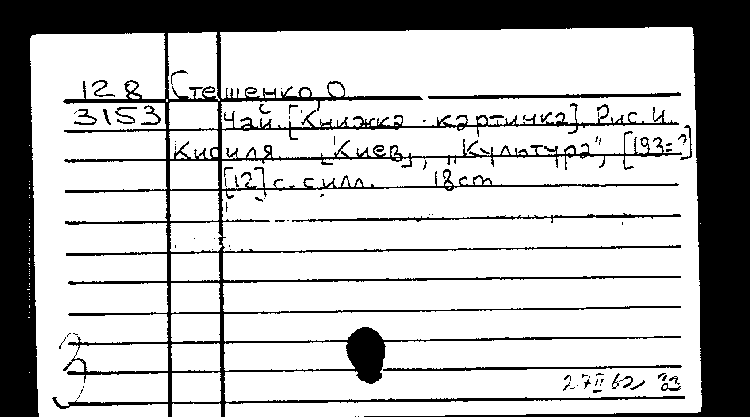 128 Стешенко, О.
3153 Чай. [Книжка-картинка]. Рис. И.
Кисиля. [Киев], „Культура", [193=?]
[12] с. с илл. 18 cm
3
27 II 62 33